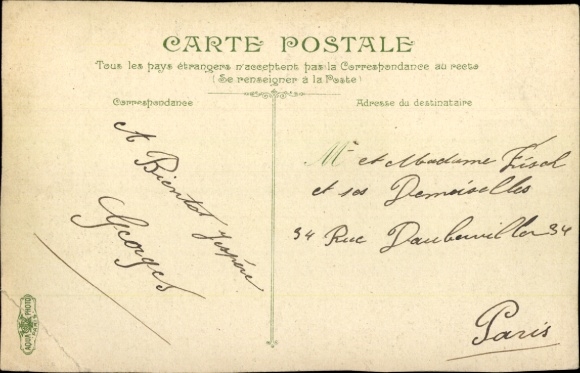 CARTE POSTALE
Tous les pays étrangers n'acceptent pas la Correspondance au recto
(Se renseigner à la Poste)
Correspondance
Adresse du destinataire
A Bientot j'espére
Georges
Mr et Madame
et ses Demoiselles
34 Rue 34
Paris
AQUA PHOTO